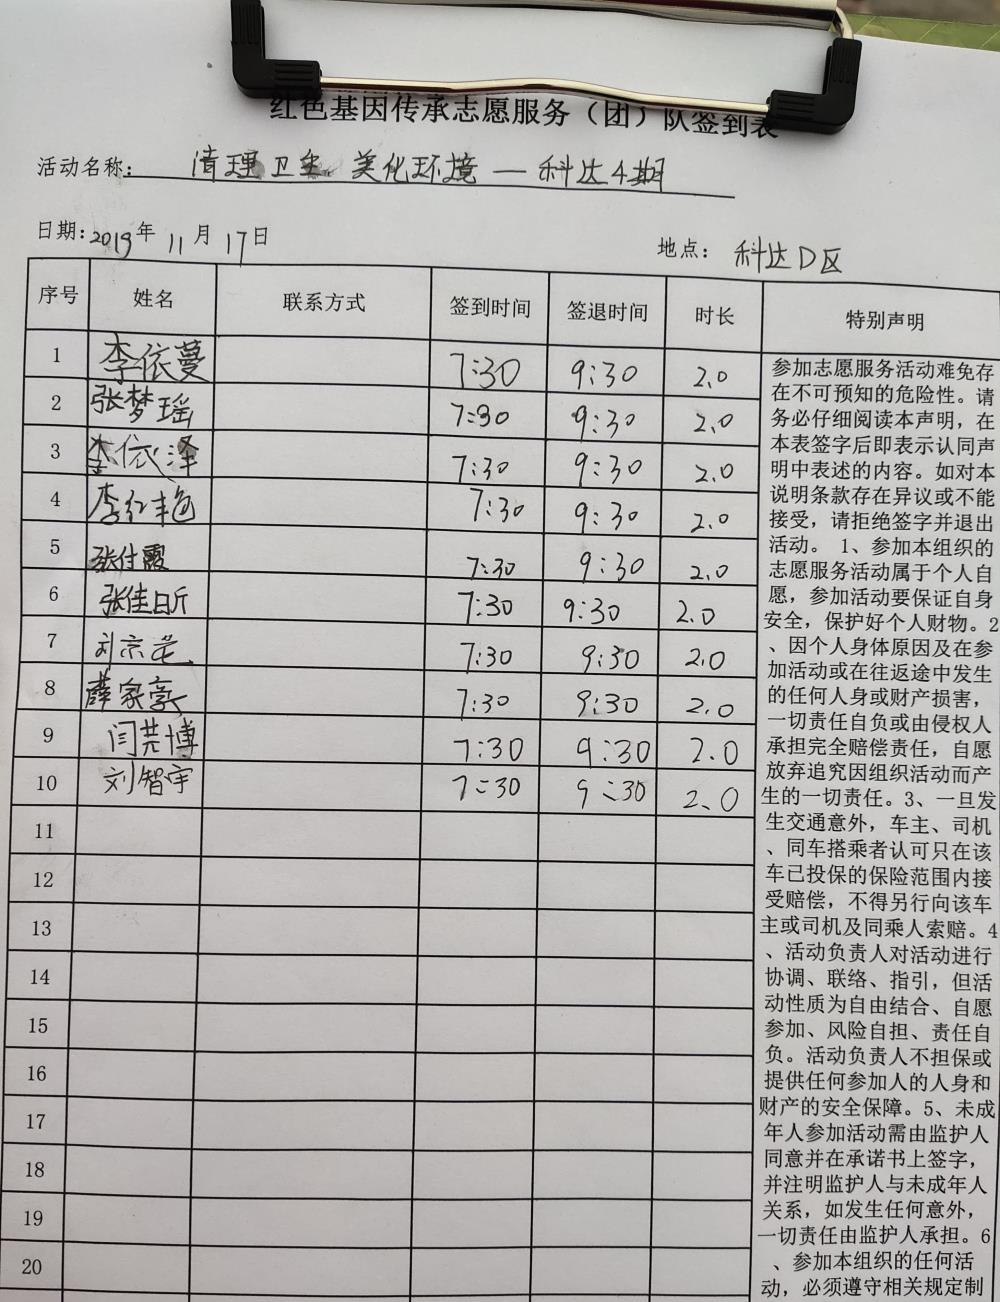 红色基因传承志愿服务（团）队签到表
活动名称： 清理卫生 美化环境 — 科达4期
日期：2019年 11月 17日
地点： 科达D区
序号 姓名 联系方式 签到时间 签退时间 时长 特别声明
1 李依蔓 7:30 9:30 2.0
2 张梦瑶 7:30 9:30 2.0
3 李依泽 7:30 9:30 2.0
4 李红艳 7:30 9:30 2.0
5 张付霞 7:30 9:30 2.0
6 张佳昕 7:30 9:30 2.0
7 刘京 7:30 9:30 2.0
8 薛家豪 7:30 9:30 2.0
9 闫芸博 7:30 9:30 2.0
10 刘智宇 7:30 9:30 2.0
11
12
13
14
15
16
17
18
19
20
参加志愿服务活动难免存
在不可预知的危险性。请
务必仔细阅读本声明，在
本表签字后即表示认同声
明中表述的内容。如对本
说明条款存在异议或不能
接受，请拒绝签字并退出
活动。 1、参加本组织的
志愿服务活动属于个人自
愿，参加活动要保证自身
安全，保护好个人财物。2
、因个人身体原因及在参
加活动或在往返途中发生
的任何人身或财产损害，
一切责任自负或由侵权人
承担完全赔偿责任，自愿
放弃追究因组织活动而产
生的一切责任。3、一旦发
生交通意外，车主、司机
、同车搭乘者认可只在该
车已投保的保险范围内接
受赔偿，不得另行向该车
主或司机及同乘人索赔。4
、活动负责人对活动进行
协调、联络、指引，但活
动性质为自由结合、自愿
参加、风险自担、责任自
负。活动负责人不担保或
提供任何参加人的人身和
财产的安全保障。5、未成
年人参加活动需由监护人
同意并在承诺书上签字，
并注明监护人与未成年人
关系，如发生任何意外，
一切责任由监护人承担。6
、参加本组织的任何活
动，必须遵守相关规定制